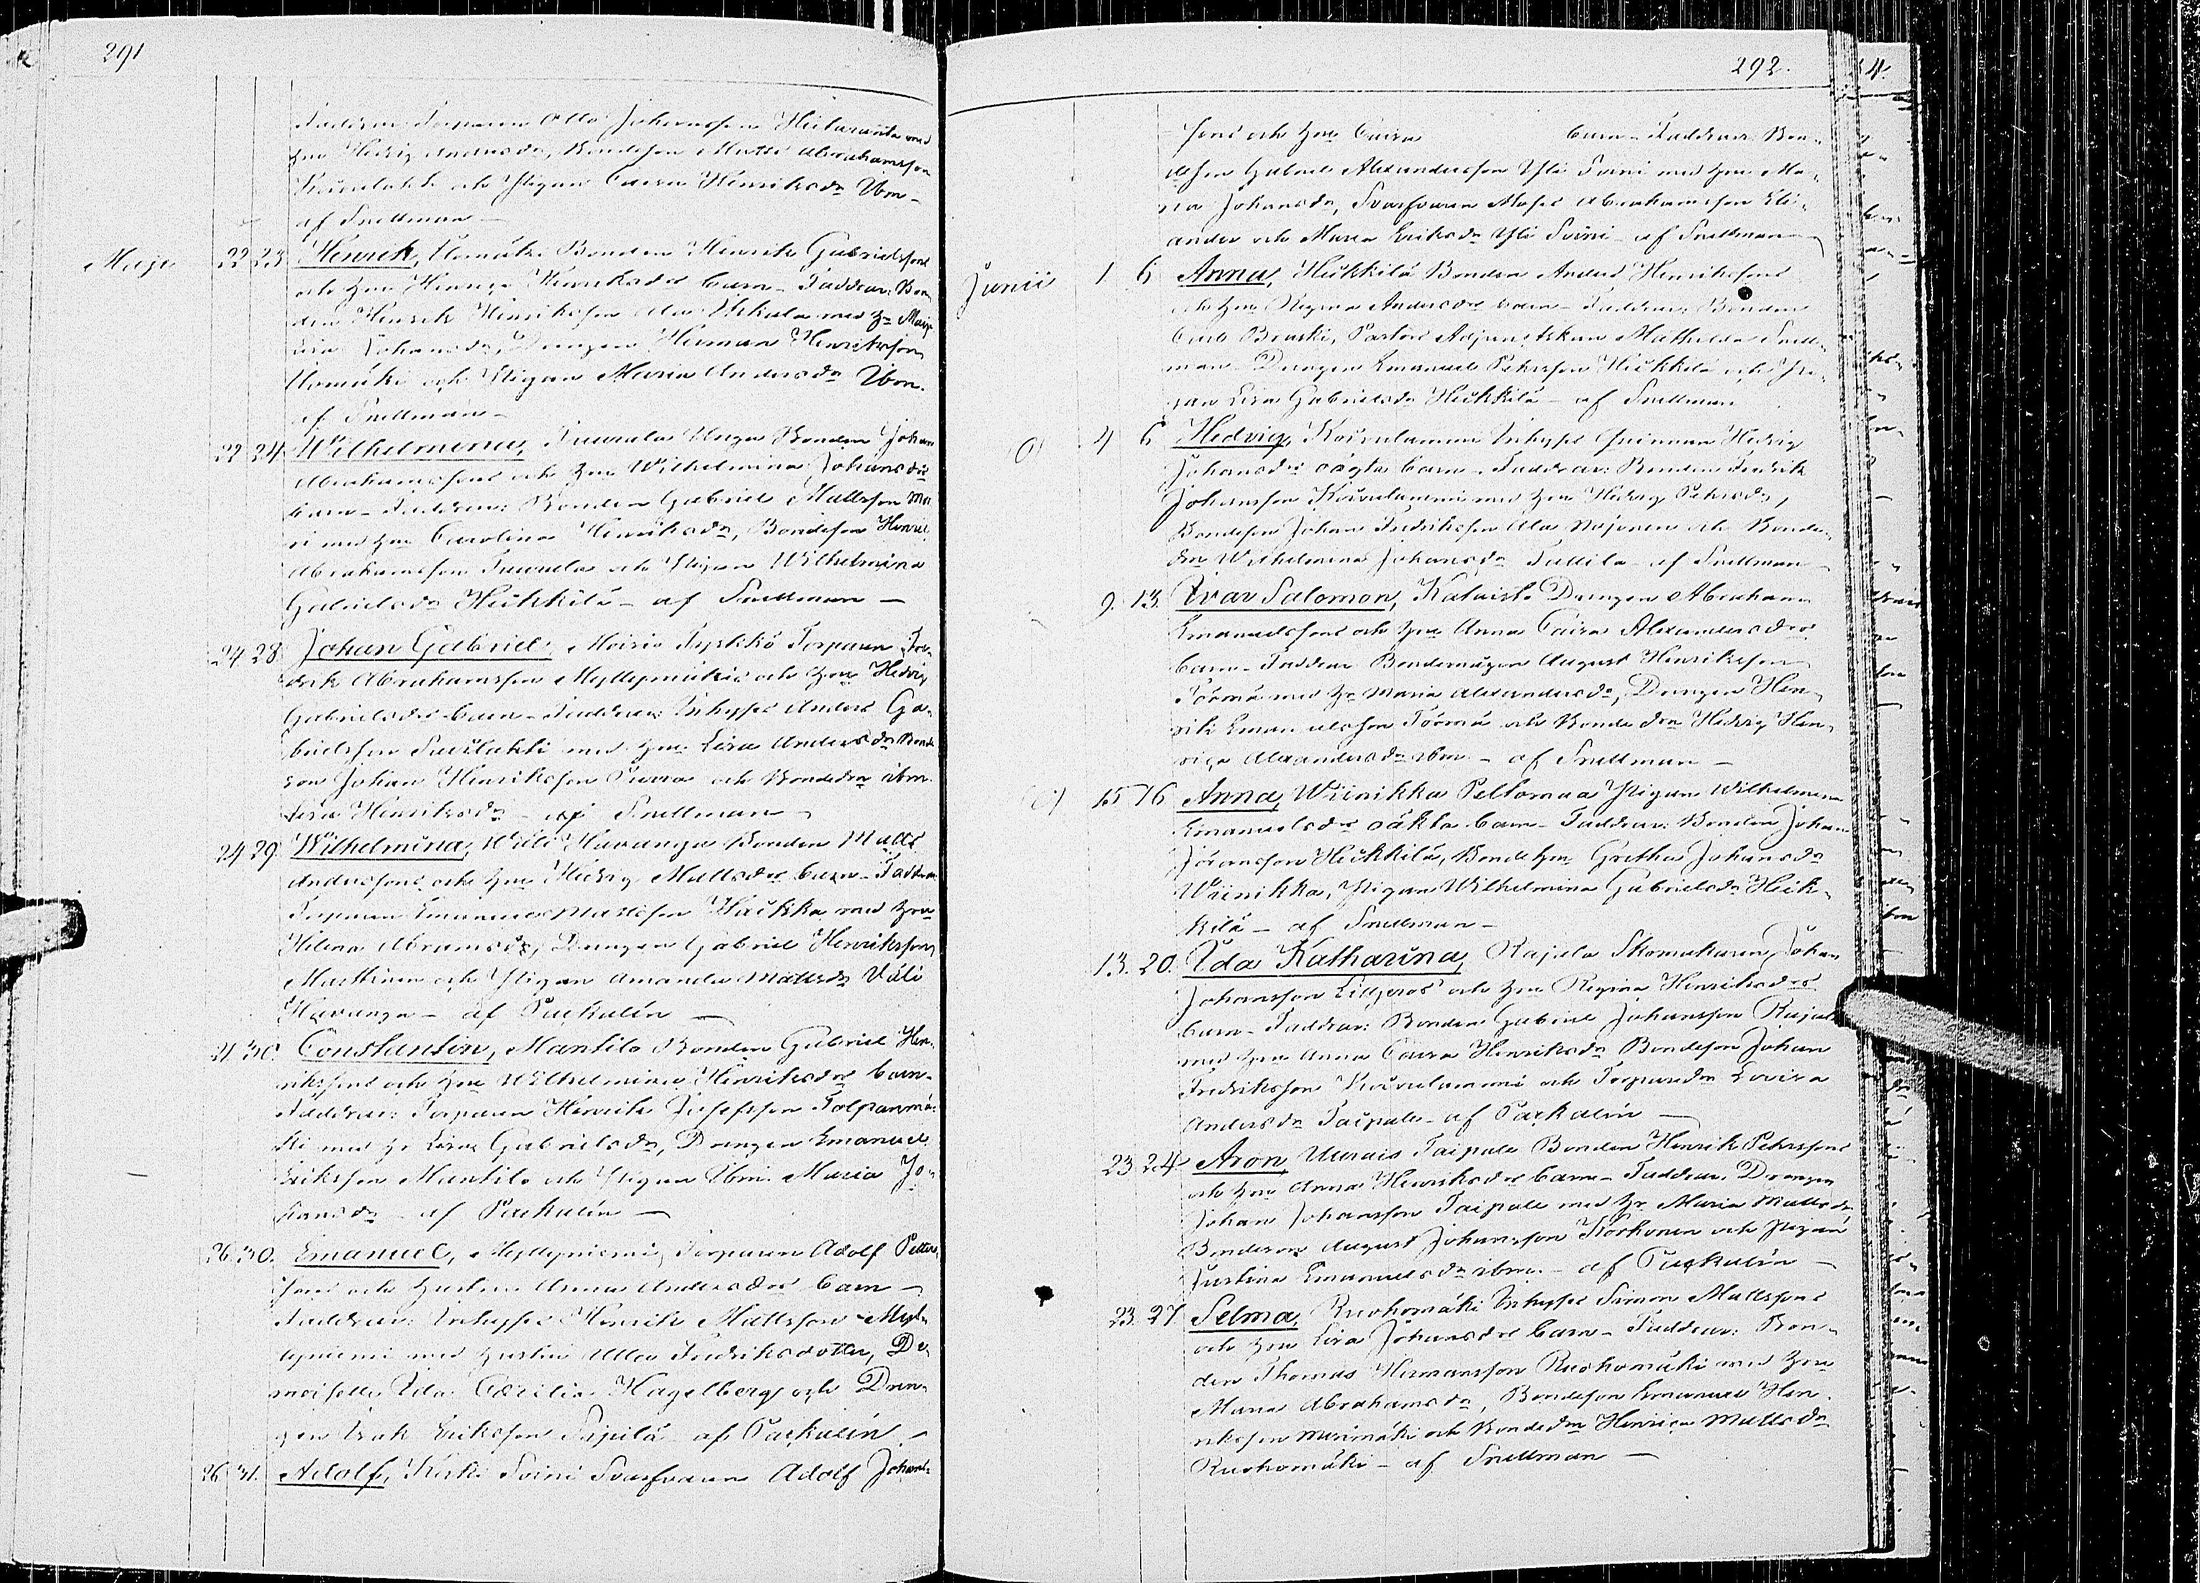 291
Faddrar: Torparen Otto Johansson Hietaranta med
hru Hedvig Andersdr, Bondeson Matts Abrahamsson
och Pigan Caisa Henriksdr Ibm
af Snellman
Maji 22 23 Henrik, Uomäki Bonden Henrik Gabrielssons
och hru Henrica Henriksdrs barn - Faddrar: Bon-
den Henrik Henriksson med hru Maja
Lisa Johansdr, Drengen Herman Henriksson
Uomäki och Pigan Maria Andersdr Ibm.
af Snellman -
22 24 Wilhelmina, Bonden Johan
Abrahamssons och hru Wilhelmina Johansdrs
barn - Faddrar: Bonden Gabriel Mattsson
med hru Carolina Henriksdr, Bondeson Henrik
Abrahamsson och Pigan Wilhelmina
Gabrielsdr Heikkilä - af Snellman -
24 28 Johan Gabriel, Torparen Fre-
drik Abrahamsson Myllymäkis och hru Hedvig
Gabrielsdrs barn - Faddrar: Inhyses Anders Ga-
brielsson Savilahti med hru Lisa Andersdr Bonde-
son Johan Henriksson och Bondedr ibm.
Lisa Henriksdr - af Snellman
24 29. Wilhelmina, Wäli Havanga Bonden Matts
Anderssons och hru Hedvig Mattsdrs barn - Faddrar
Torparen Emanuel Mattsson med hru
Helena Abramsdr, Drengen Gabriel Henriksson
och Pigan Amanda Mattsdr Väli
Havanga - af Packalén -
21 30. Constantin, Mantila Bonden Gabriel Hen-
rikssons och hru Wilhelmina Henriksdrs barn -
Faddrar: Torparen Henrik Josefsson Tolpanmä-
ki med hr Lisa Gabrielsdr, Drengen Emanuel
Eriksson Mantila och Pigan Ibm. Maria Jo-
hansdr - af Packalén -
26. 30. Emanuel, Myllyniemi, Torparen Adolf Petters-
sons och hustru Anna Andersdrs barn -
Faddrar: Inhyses Henrik Mattsson Myl-
lyniemi med hustru Ulla Fredriksdotter, De-
moiselle Ida Cæcilia Hagelberg och Dren-
gen Isak Eriksson Pajula af Packalén -
26 31. Adolf, Koski Soini Svarfvaren Adolf Johans-
292.
sons och hru Caisa barn - Faddrar: Bon-
deson Gabriel Alexandersson Yli Soini med hru Ma-
ria Johansdr, Svarfvaren Moses Abrahamsson Eli-
ander och Maria Eriksdr Yli Soini - af Snellman
Junii 1 6 Anna, Heikkilä Bonden Anders Henrikssons
och hru Regina Andersdrs barn - Faddrar: Bonden
Carl Pastors Adjunctskan Mathilda Snell-
man Drengen Emanuel Petersson Heikkilä och Pi-
gan Lisa Gabrielsdr Heikkilä - af Snellman
4 6 Hedvig, Koivulammi Inhyses Qvinnan Hedvig
Johansdrs oägta barn. Faddrar: Bonden Fredrik
Johansson Koivulammi med hru Hedvig Petersdr,
Bondeson Johan Fredriksson och Bonde-
dr Wilhelmina Johansdr - af Snellman -
9. 13. Ivar Salomon, Kataisto Drengen Abraham
Emanuelssons och hru Anna Caisa Alexandersdrs
barn - Faddrar Bondemågen August Henriksson
Törmä med hr Maria Alexandersdr, Drengen Hen-
rik Emanuelsson Törmä och Bondedr Hedvig Hen-
rica Alexandersdr ibm. - af Snellman -
15 16 Anna, Wiinikka Peltomaa Pigan Wilhelmina
Emanuelsdrs oäkta barn - Faddrar: Bonden Johan
Göransson Heikkilä, Bonde hru Gretha Johansdr
Wiinikka, Pigan Wilhelmina Gabrielsdr Heik-
kilä - af Snellman -
13. 20. Ida Katharina, Rajala Skomakaren Johan
Johansson Liljeros och hru Regina Henriksdrs
barn - Faddrar: Bonden Gabriel Johansson Rajala
med hru Anna Caisa Henriksdr Bondeson Johan
Fredriksson Koivulammi och Torparedr Lovisa
Andersdr Taipale - af Packalén -
23 24 Aron, Uurais Taipale Bonden Henrik Peterssons
och hru Anna Henriksdrs barn - Faddrar: Drengen
Johan Johansson Taipale med hr Maria Mattsdr,
Bondeson August Johansson Korhonen och Pigan
Justina Emanuelsdr ibm. - af Packalén -
23. 27 Selma, Ruokomäki Inhyses Simon Mattssons
och hru Lisa Johansdrs barn - Faddrar: Bon-
den Thomas Hermansson Ruokomäki med hru
Maria Abrahamsdr, Bondeson Emanuel Hen-
riksson Merimäki och Bondedr Henrica Mattsdr
Ruokomäki - af Snellman -